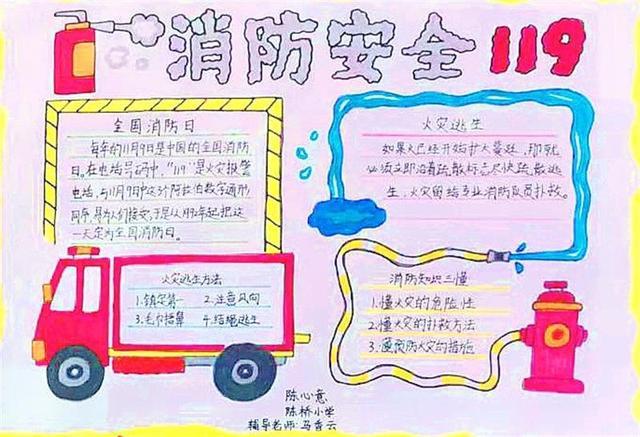 消防安全 119
全国消防日
每年的11月9日是中国的全国消防
日。在电话号码中，"119"是火灾报警
电话，与11月9日中这3个阿拉伯数字通形
同序，易为人们接受，于是从1992年起把这
一天定为全国消防日。
火灾逃生
如果火已经开始扩大蔓延，那就
必须立即沿着疏散标志尽快疏散逃
生，火灾留给专业消防队员扑救。
火灾逃生方法
1.镇定第一 2.注意风向
3.毛巾捂鼻 4.结绳逃生
消防知识三懂
1.懂火灾的危险性
2.懂火灾的扑救方法
3.懂预防火灾的措施
陈心意
陈桥小学
辅导老师:马香云